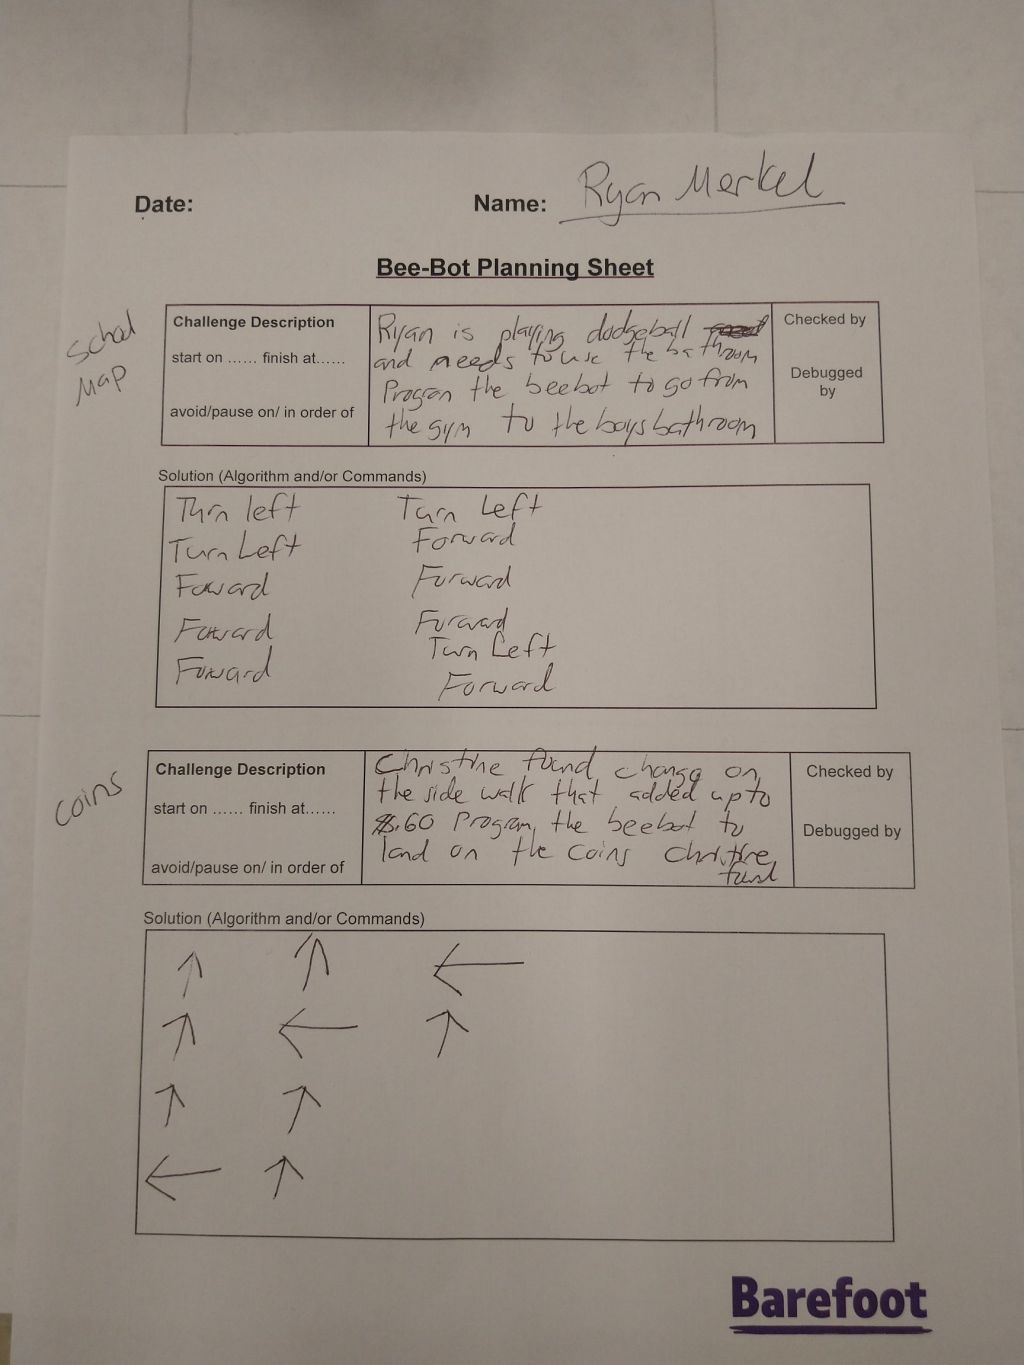 Date:
Name: Ryan Merkel
Bee-Bot Planning Sheet
School
Map
Challenge Description
start on ...... finish at......
avoid/pause on/ in order of
Ryan is playing dodgeball
and needs to use the bathroom
Program the beebot to go from
the gym to the boys bathroom
Checked by
Debugged
by
Solution (Algorithm and/or Commands)
Turn left
Turn Left
Foward
Foward
Forward
Turn Left
Forward
Forward
Forward
Turn Left
Forward
Coins
Challenge Description
start on ...... finish at......
avoid/pause on/ in order of
Christine found change on
the side walk that added up to
$.60 Program the beebot to
land on the coins Christine
found
Checked by
Debugged by
Solution (Algorithm and/or Commands)
↑ ↑ ←
↑ ← ↑
↑ ↑
← ↑
Barefoot